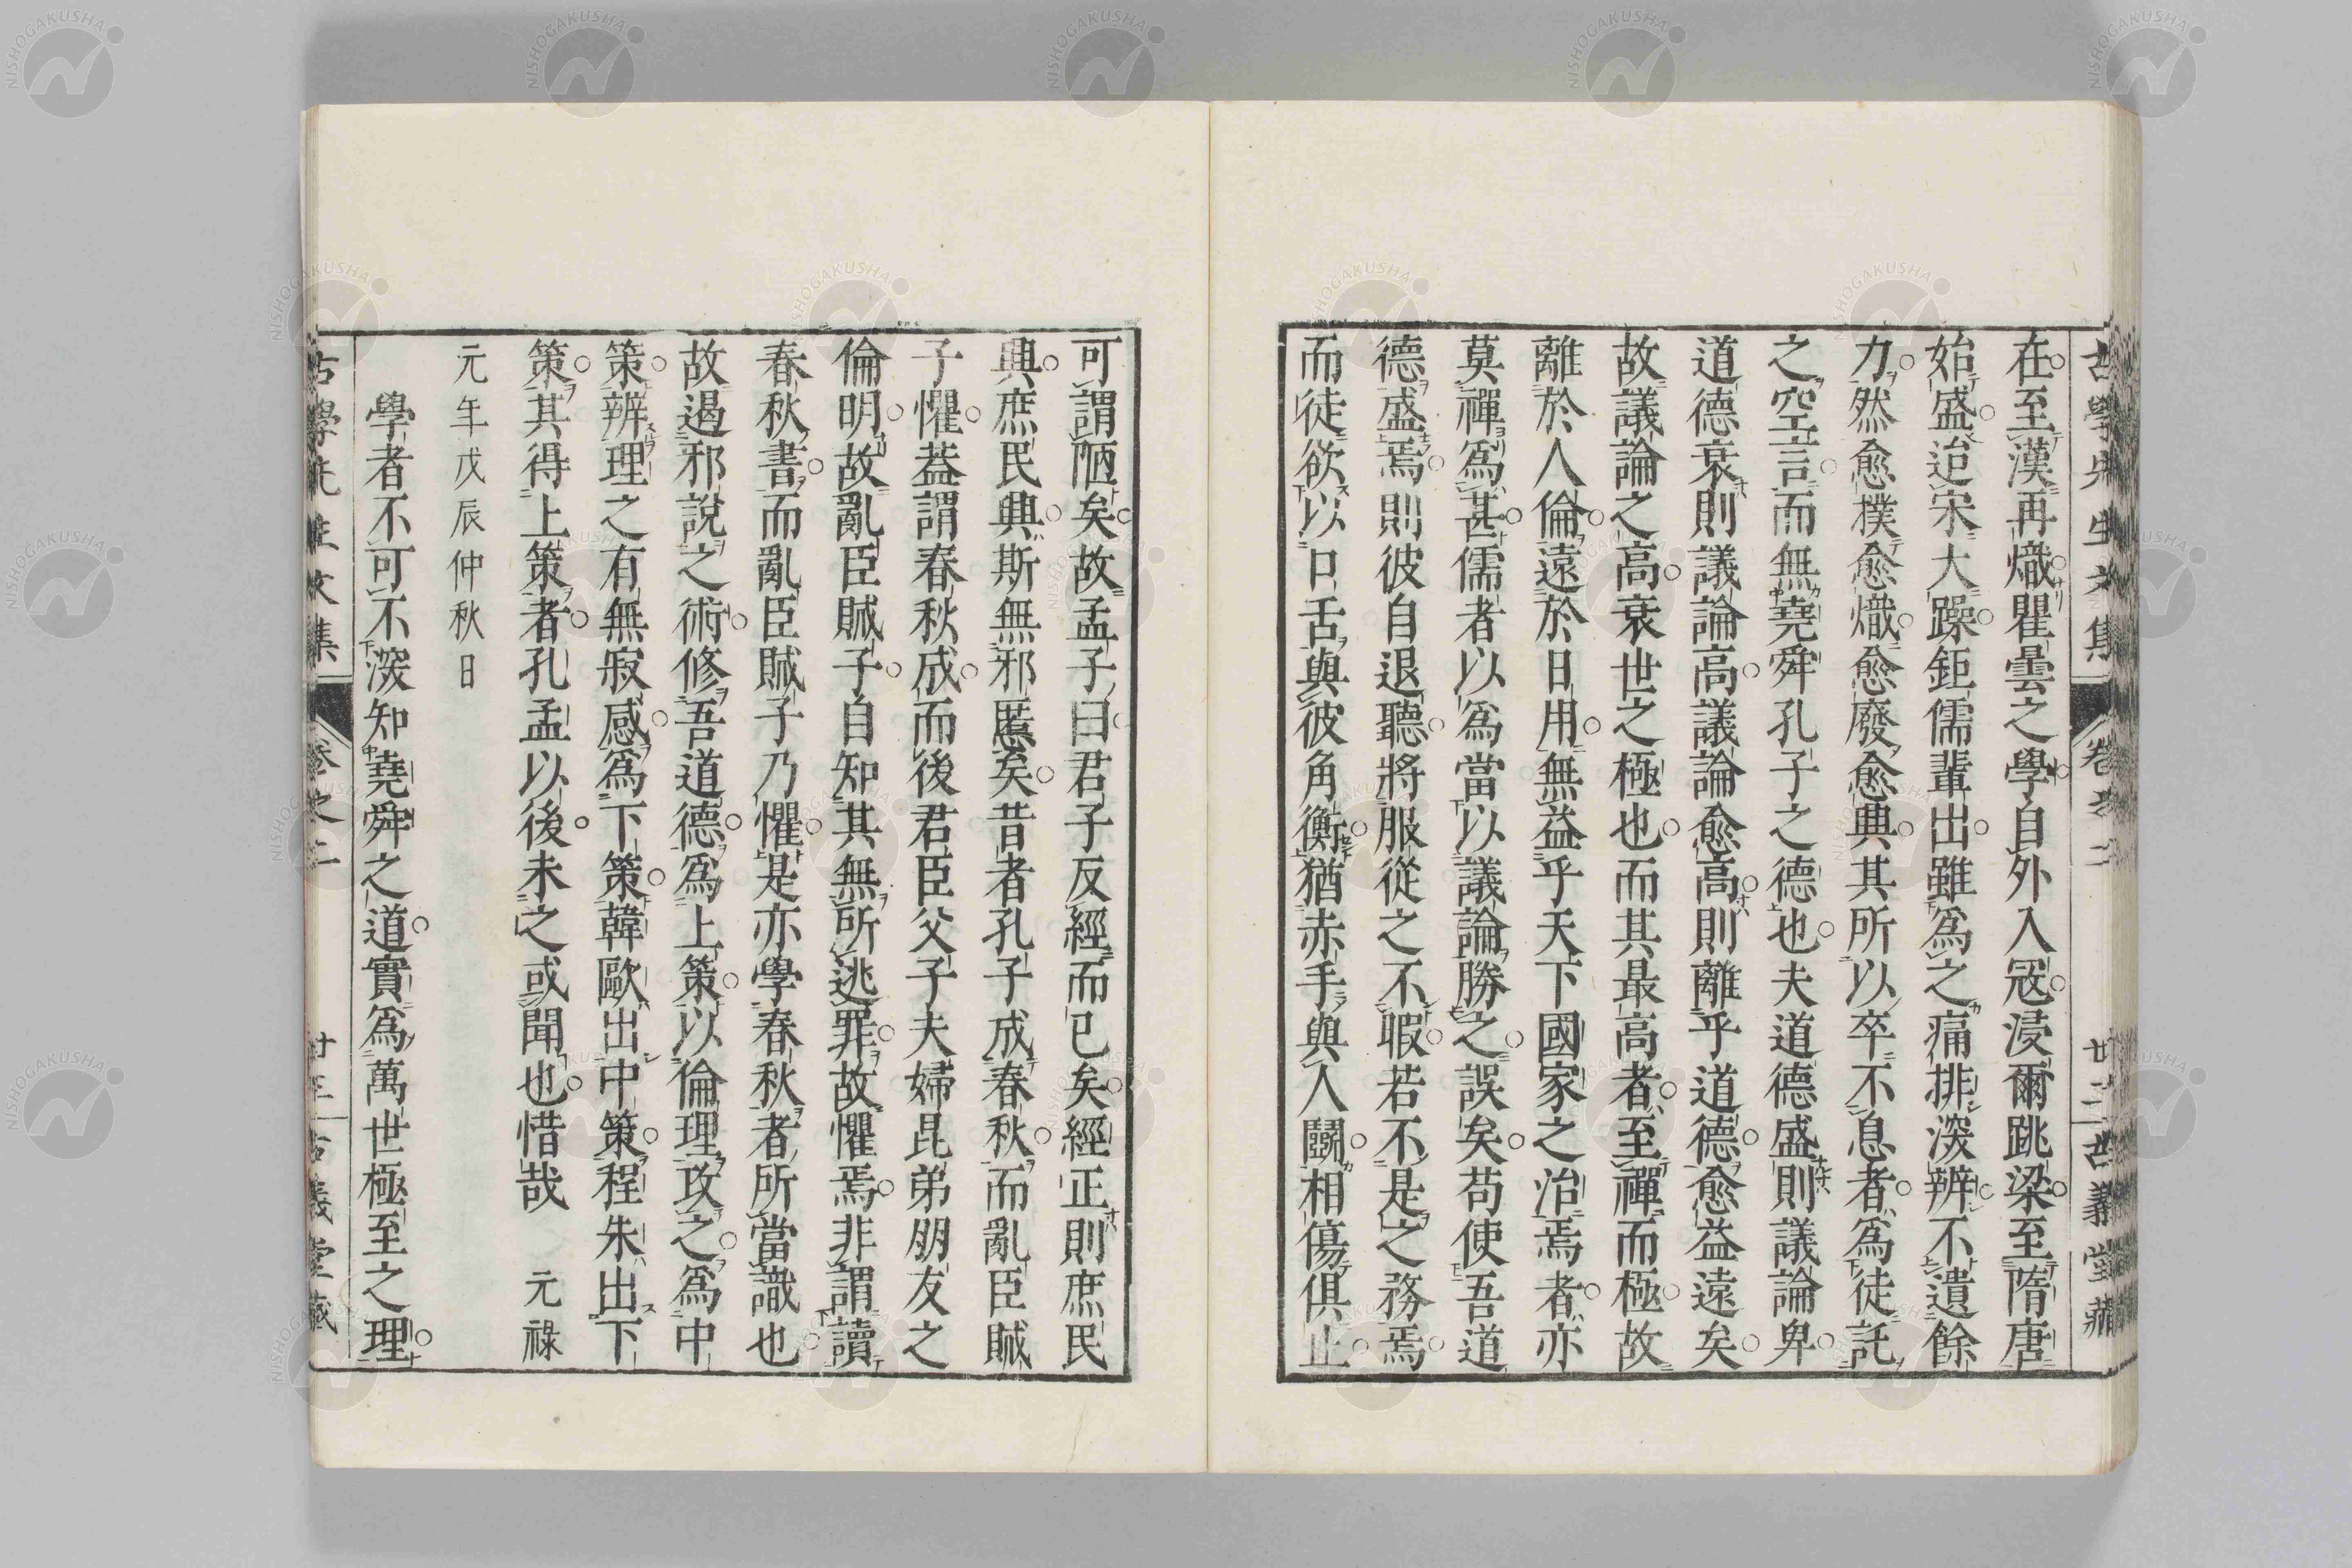 古學先生文集 卷之二 廿二 古義堂藏
在至漢再熾瞿曇之學自外入冦浸爾跳梁至隋唐
始盛迨宋大躁鉅儒輩出雖爲之痛排深辨不遺餘
力然愈撲愈熾愈廢愈興其所以卒不息者爲徒託
之空言而無堯舜孔子之德也夫道德盛則議論卑
道德衰則議論高議論愈高則離乎道德愈益遠矣
故議論之高衰世之極也而其最高者至禪而極故
離於人倫遠於日用無益乎天下國家之治焉者亦
莫禪爲甚儒者以爲當以議論勝之誤矣苟使吾道
德盛焉則彼自退聽將服從之不暇若不是之務焉
而徒欲以口舌與彼角衡猶赤手與人鬭相傷俱止
可謂陋矣故孟子曰君子反經而已矣經正則庶民
興庶民興斯無邪慝矣昔者孔子成春秋而亂臣賊
子懼葢謂春秋成而後君臣父子夫婦昆弟朋友之
倫明故亂臣賊子自知其無所逃罪故懼焉非謂讀
春秋書而亂臣賊子乃懼是亦學春秋者所當識也
故遏邪說之術修吾道德爲上策以倫理攻之爲中
策辨理之有無寂感爲下策韓歐出中策程朱出下
策其得上策者孔孟以後未之或聞也惜哉 元祿
元年戊辰仲秋日
學者不可不深知堯舜之道實爲萬世極至之理
古學先生文集 卷之二 廿三 古義堂藏
NISHOGAKUSHA